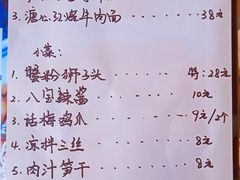 3. 溏心红烧牛肉面 ······ 38元
小菜:
1. 蟹粉狮子头 ······ 特:28元
2. 八宝辣酱 ······ 10元
3. 话梅鸡爪 ······ 9元/2个
4. 凉拌三丝 ······ 8元
5. 肉汁笋干 ······ 8元